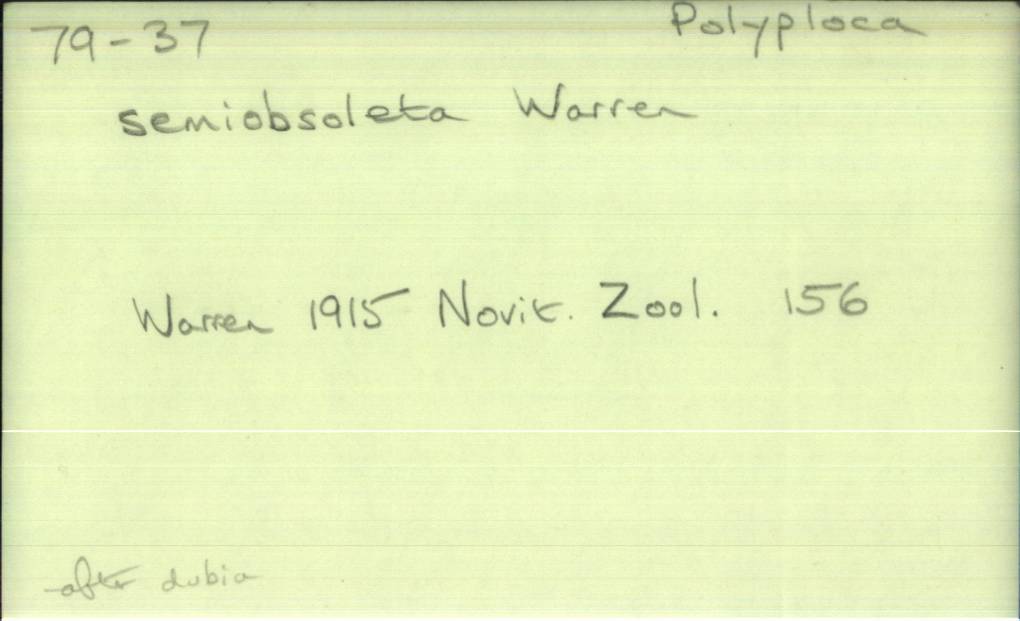 79-37 Polyploca
semiobsoleta Warren
Warren 1915 Novit. Zool. 156
after dubia